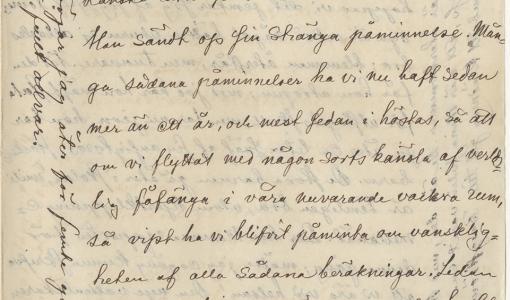 Han sändt oss sin stränga påminnelse. Mån-
ga sådana påminnelser ha vi nu haft sedan
mer än ett år, och mest sedan i höstas, så att
om vi flyttat med någon sorts känsla af verld-
lig fåfänga i våra nuvarande vackra rum,
så visst ha vi blifvit påminta om vansklig=
heten af alla sådana beräkningar. Sedan
jag åter för femte
fullt allvar.